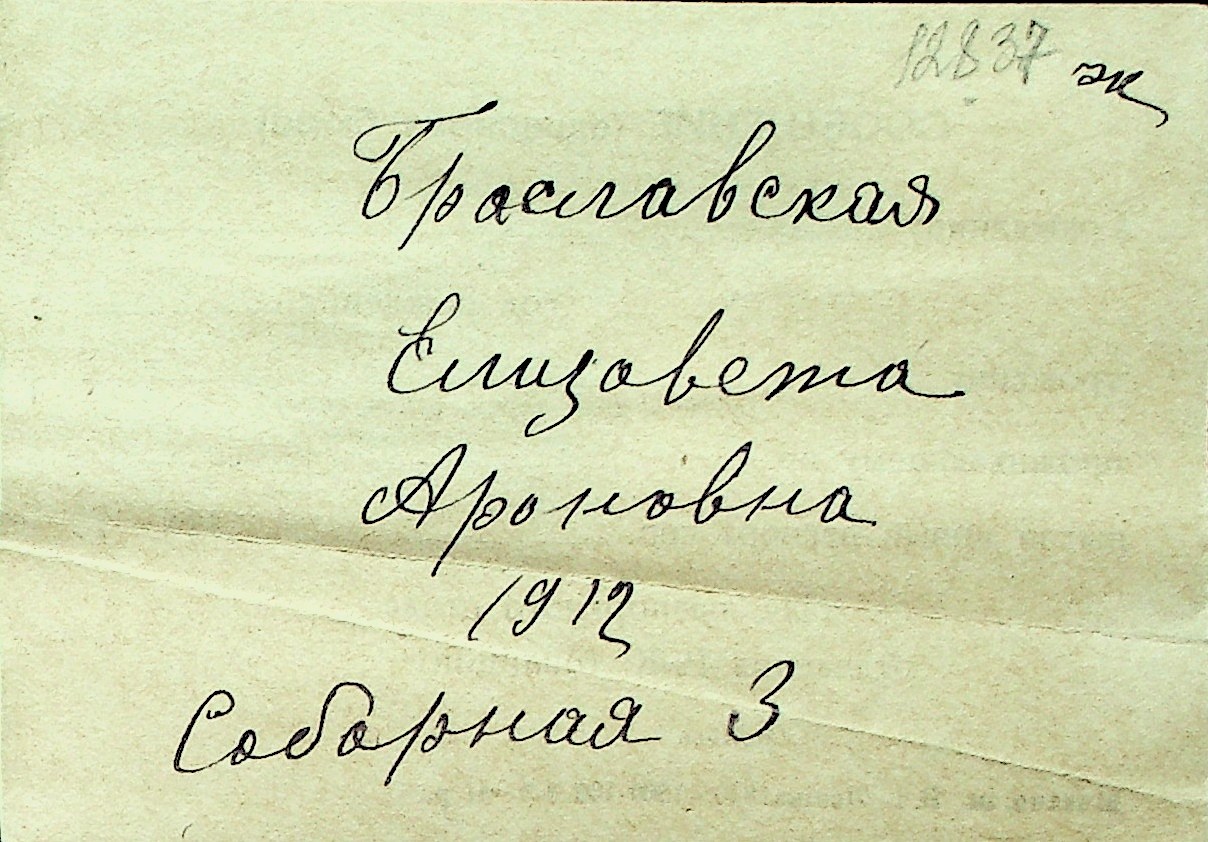 12837 эк
Браславская
Елизавета
Ароновна
1912
Соборная 3